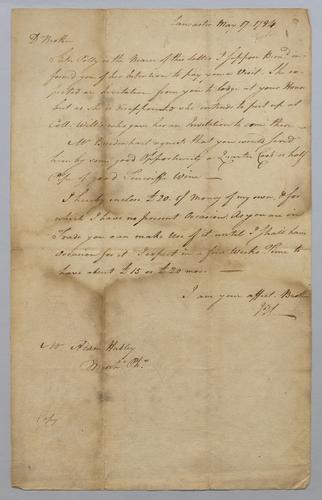 Lancaster May 17 1784
Dr Brother
Polly is the Bearer of this letter I suppose Brond in
formd you of her Intention to pay you a Visit. She ex
pected an Invitation from you to lodge at your House
but as she is disappointed she intends to put up at
Coll. Wills who gave her an Invitation to come there —
Mr requests that you would send
him by some good Opportunity a Quarter Cask or half
Pipe of good Teneriffe Wine —
I hereby enclose £20. of money of my own, & for
which I have no present Occasion. As you are in
Trade you can make Use of it until I shall have
Occasion for it. I expect in a few Weeks Time to
have about £15 or £20 more. —
I am your affect. Brother
Mr Adam Hubley
Merch.t Pha
Copy